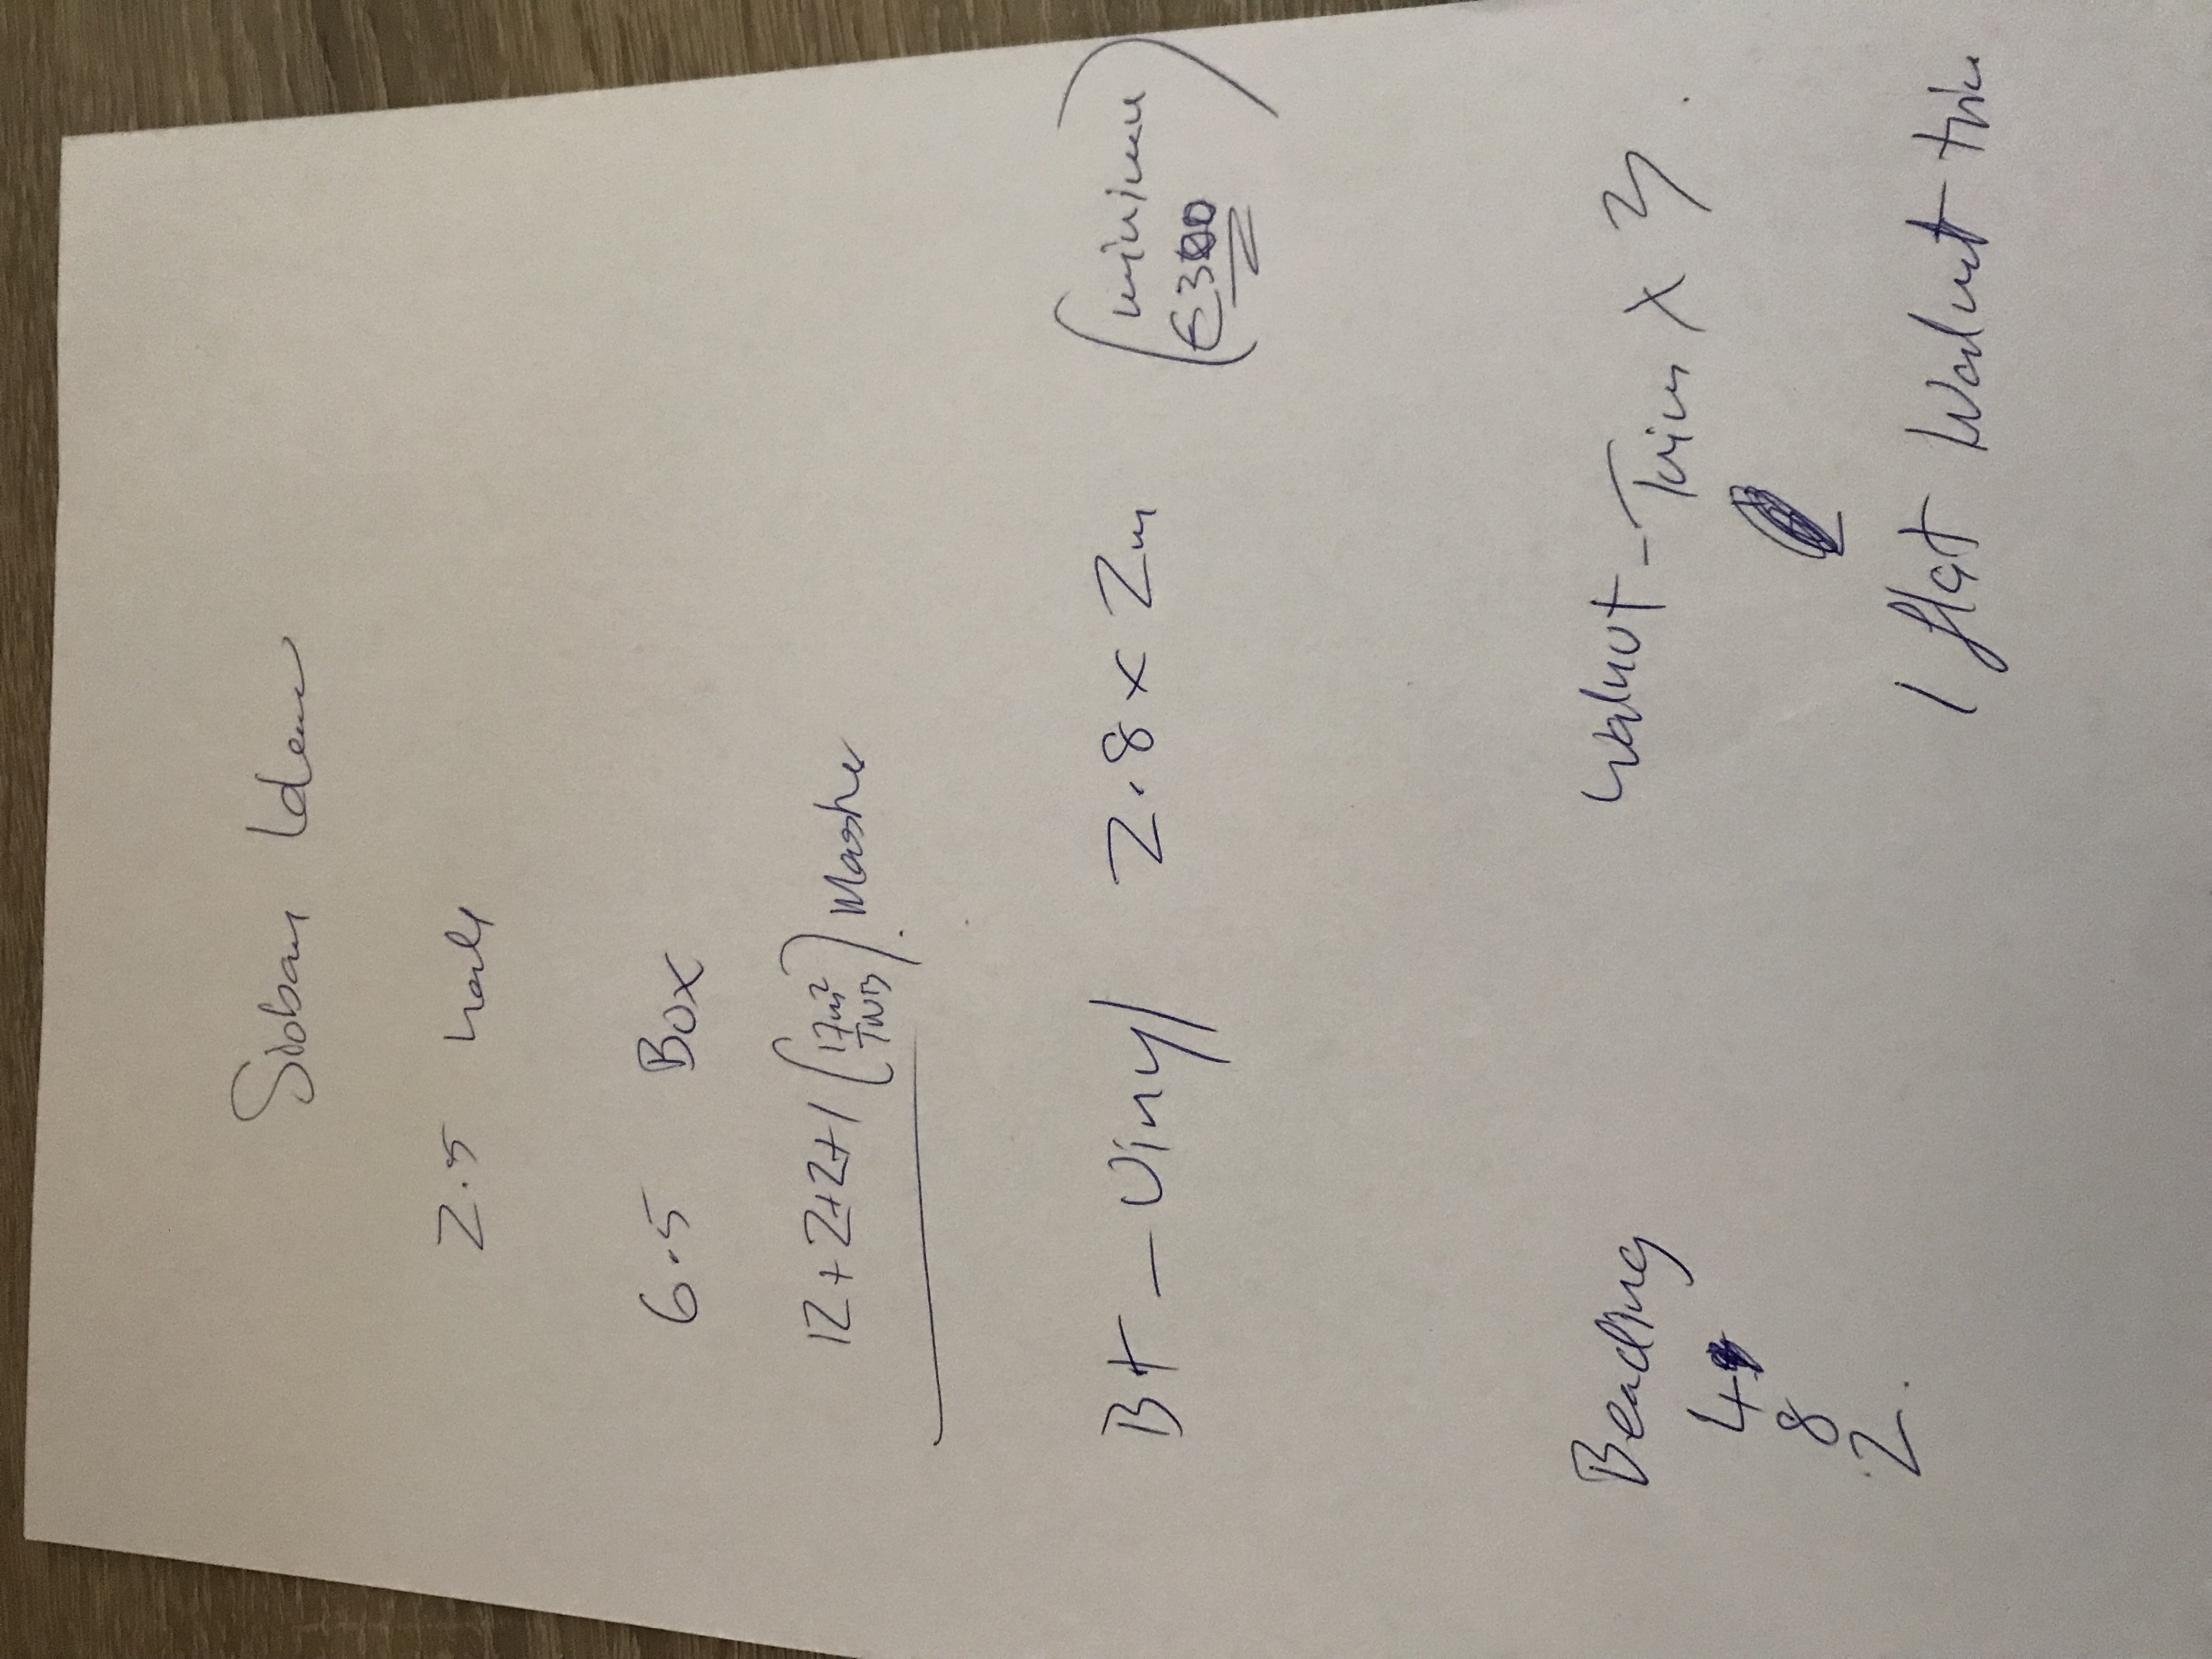 Sioban
2.5 Hall
6.5 Box
12+2+2+1 (17m² TWB) Master
Bt - Vinyl 2.8 x 2m (minimum €300)
Beading Walnut - Twin x 3.
4
8
2.
1 flat walnut trim